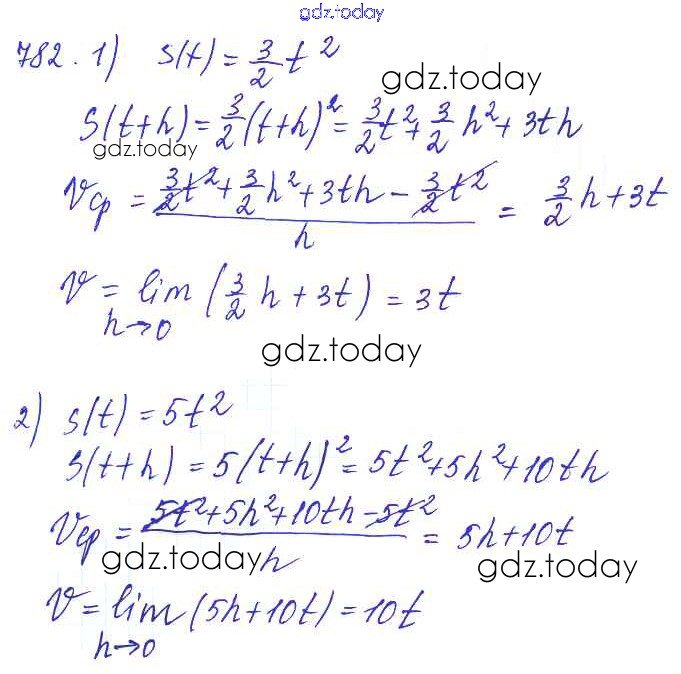 gdz.today
782. 1) s(t) = 3/2 t²
gdz.today
S(t+h) = 3/2 (t+h)² = 3/2 t² + 3/2 h² + 3th
gdz.today
Vср = (3/2 t² + 3/2 h² + 3th - 3/2 t²) / h = 3/2 h + 3t
V = lim (3/2 h + 3t) = 3t
h→0
gdz.today
2) s(t) = 5t²
S(t+h) = 5(t+h)² = 5t² + 5h² + 10th
Vср = (5t² + 5h² + 10th - 5t²) / h = 5h + 10t
gdz.today gdz.today
V = lim (5h + 10t) = 10t
h→0